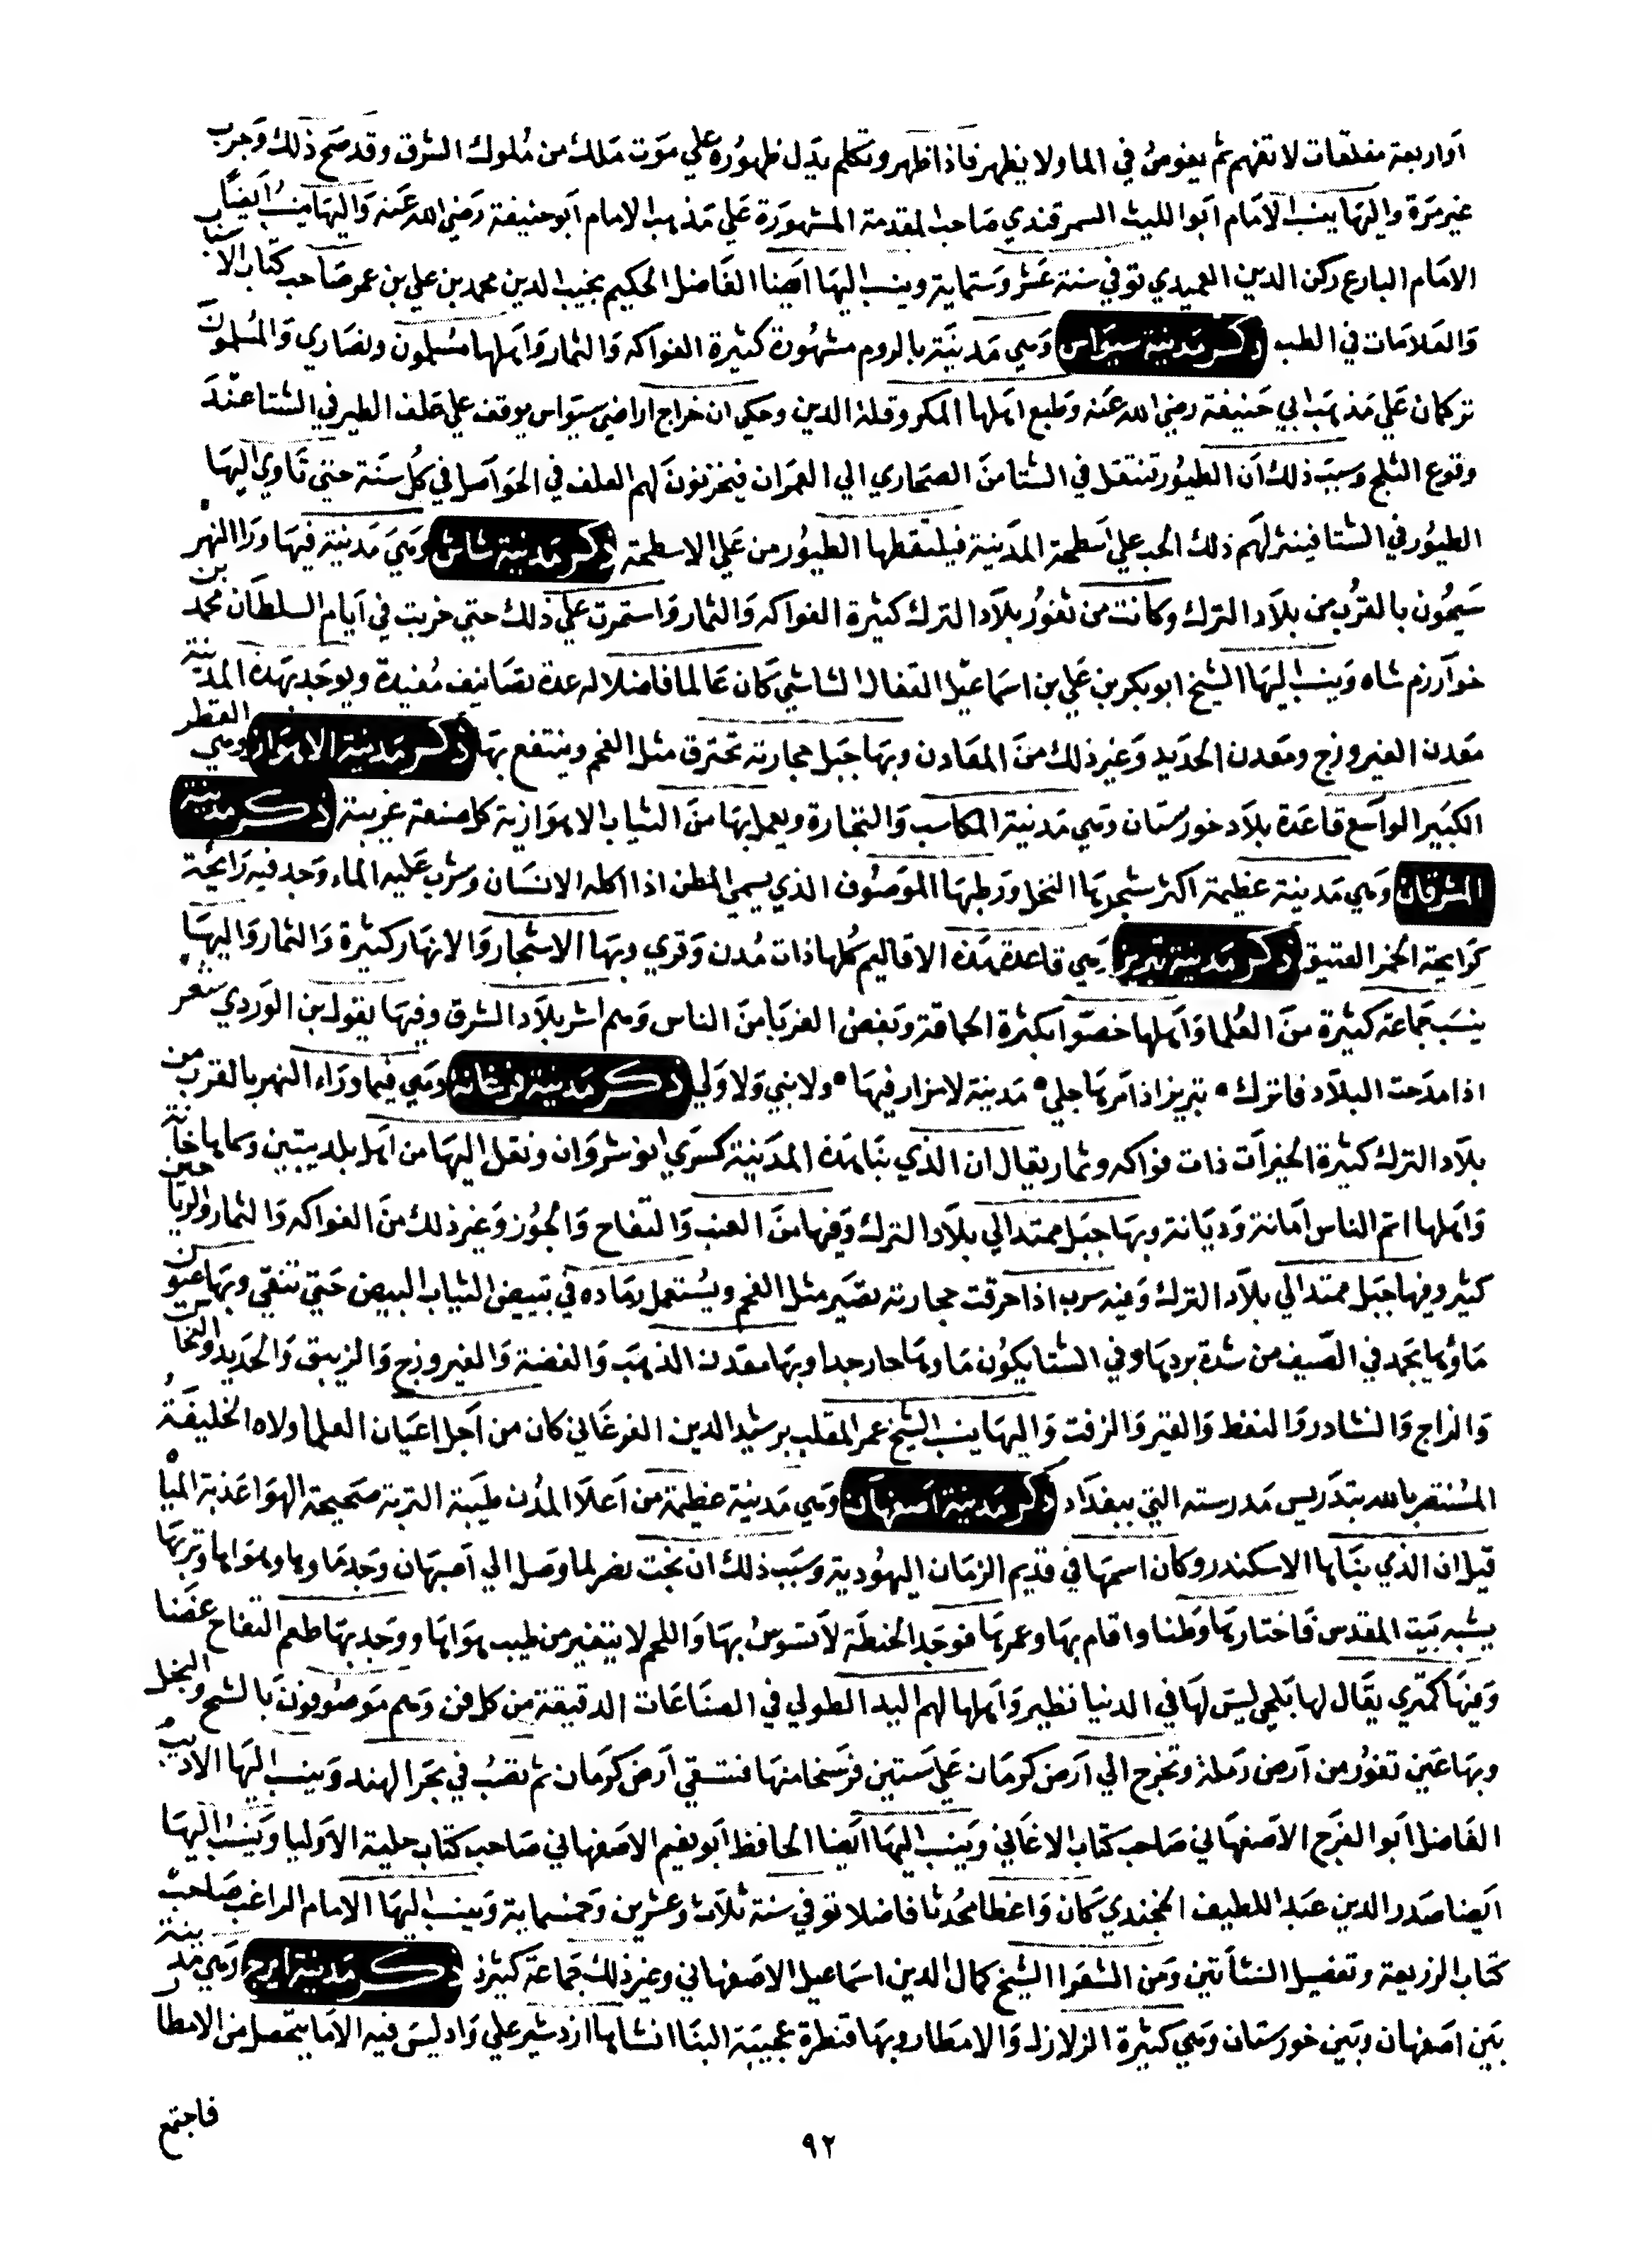 أو اربعة مغلقات لا تفهم ثم يغوص في الما ولا يظهر فاذا ظهر وتكلم يدل ظهوره علي موت ملك من ملوك الشرق وقد صح ذلك وجرب
غير مرة واليها ينسب الامام ابو الليث السمرقندي صاحب المقدمة المشهورة علي مذهب الامام ابو حنيفة رضي الله عنه واليها ينسب ايضا
الامام البارع ركن الدين العميدي توفي سنة عشر وستماية وينسب اليها ايضا الفاضل الحكيم نجيب الدين محمد بن علي بن عمر صاحب كتاب الاسباب
والعلامات في الطب ذكر مدينة سيواس وهي مدينة بالروم مشهورة كثيرة الفواكه والثمار واهلها مسلمون ونصاري والمسلمون
تركمان علي مذهب ابي حنيفة رضي الله عنه وطبع اهلها المكر وقلة الدين وحكي ان خراج اراضي سيواس يوقف علي علف الطير في الشتا عند
وقوع الثلج وسبب ذلك ان الطيور تنتقل في الشتا من الصحاري الي العمران فيخزنون لهم العلف في الحواصل في كل سنة حتي تاوي اليها
الطيور في الشتا فينثر لهم ذلك الحب علي اسطحة المدينة فيلتقطها الطيور من علي الاسطحة ذكر مدينة شاش وهي مدينة فيها ورا النهر
سيحون بالقرب من بلاد الترك وكانت من ثغور بلاد الترك كثيرة الفواكه والثمار واستمرت علي ذلك حتي خربت في ايام السلطان محمد بن
خوارزم شاه وينسب اليها الشيخ ابو بكر بن علي بن اسماعيل القفال الشاشي كان عالما فاضلا له عدة تصانيف مفيدة ويوجد بهذه المدينة
معدن الفيروزج ومعدن الحديد وغير ذلك من المعادن وبها جبل حجارته تحترق مثل الفحم وينتفع بها ذكر مدينة الاهواز وهي القطر
الكبير الواسع قاعدة بلاد خورستان وهي مدينة المكاسب والتجارة ويعمل بها من الثياب الاهوازية كل صنعة غريبة ذكر مدينة
المشرقان وهي مدينة عظيمة اكثر شجرها النخل ورطبها الموصوف الذي يسمي المطن اذا اكله الانسان وشرب عليه الماء وجد فيه رايحة
كرايحة الخمر العتيق ذكر مدينة تبريز وهي قاعدة هذه الاقاليم كلها ذات مدن وقري وبها الاشجار والانهار كثيرة والثمار واليها
ينسب جماعة كثيرة من العلما واهلها خصوا بكثرة الحماقة وبغض الغربا من الناس وهم اشر بلاد الشرق وفيها يقول بن الوردي شعر
اذا مدحت البلاد فاترك • تبريز اذ امرها جلي • مدينة لا مزار فيها • ولا نبي ولا ولي ذكر مدينة فرغانة وهي فيما وراء النهر بالقرب من
بلاد الترك كثيرة الخيرات ذات فواكه وثمار يقال ان الذي بنا هذه المدينة كسري انوشروان ونقل اليها من اهل بلد بيتين وسماها خانة
واهلها اتم الناس امانة وديانة وبها جبل ممتد الي بلاد الترك وفيها من العنب والتفاح والجوز وغير ذلك من الفواكه والثمار والرياحين
كثير وفيها جبل ممتد الي بلاد الترك وفيه سرب اذا حرقت حجارته تصير مثل الفحم ويستعمل رماده في تبييض الثياب البيض حتي تنقي وبها عيون
ماؤها يجمد في الصيف من شدة بردها وفي الشتا يكون ماوها حار جدا وبها معدن الذهب والفضة والفيروزج والزيبق والحديد والنحاس
والزاج والنشادر والنفط والقير والزفت واليها ينسب الشيخ عمر المقلب برشيد الدين الفرغاني كان من اجل اعيان العلما ولاه الخليفة
المستنصر بالله بتدريس مدرسته التي ببغداد ذكر مدينة اصفهان وهي مدينة عظيمة من اعلا المدن طيبة التربة صحيحة الهوا عذبة المياه
قيل ان الذي بناها الاسكندر وكان اسمها في قديم الزمان اليهودية وسبب ذلك ان بخت نصر لما وصل الي اصبهان وجد ماوها وهواها وتربها
يشبه بيت المقدس فاختارها وطنا واقام بها وعمرها فوجد الحنطة لا تسوس بها واللحم لا يتغير من طيب هواها ووجد بها طعم التفاح غضا
وفيها كمتري يقال لها بلمي ليس لها في الدنيا نظير واهلها لهم اليد الطولي في الصناعات الدقيقة من كل فن وهم موصوفون بالشح والبخل
وبها عين تغور من ارض رملة وتخرج الي ارض كرمان علي ستين فرسخا منها فتسقي ارض كرمان ثم تصب في بحر الهند وينسب اليها الاديب
الفاضل ابو الفرج الاصفهاني صاحب كتاب الاغاني وينسب اليها ايضا الحافظ ابو نعيم الاصفهاني صاحب كتاب حلية الاوليا وينسب اليها
ايضا صدر الدين عبد اللطيف الخجندي كان واعظا محدثا فاضلا توفي سنة ثلاث وعشرين وخمسماية وينسب اليها الامام الراغب صاحب
كتاب الزريعة وتفصيل النشأتين ومن الشعرا الشيخ كمال الدين اسماعيل الاصفهاني وغير ذلك جماعة كثيرة ذكر مدينة ايرج وهي مدينة
بين اصفهان وبين خورستان وهي كثيرة الزلازل والامطار وبها قنطرة عجيبة البنا انشاها ازدشير علي واد ليس فيه الا ما يتحصل من الامطار
فاجتمع
٩٢